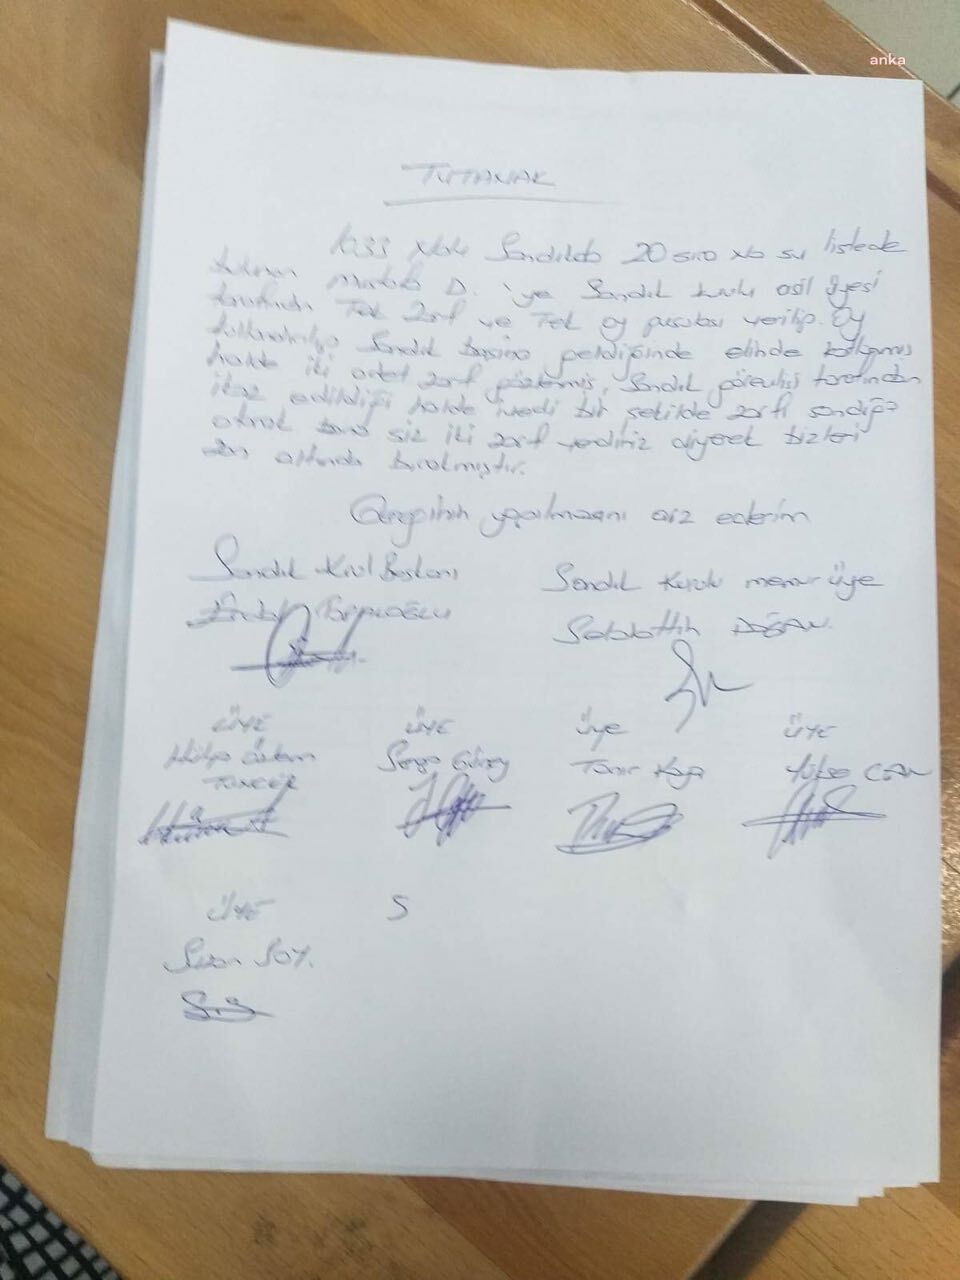 anka
TUTANAK
1033 Nolu Sandıkda 20 sıra No su listede
bulunan Mustafa D. 'ya Sandık kurulu asil üyesi
tarafından Tek Zarf ve Tek oy pusulası verilip. Oy
kullandırılıp Sandık başına geldiğinde elinde katlanmış
halde iki adet zarf gözlenmiş, Sandık görevlisi tarafından
ikaz edildiği halde bir şekilde zarfı sandığa
atarak bana siz iki zarf verdiniz diyerek bizleri
zan altında bırakmıştır.
Gereğinin yapılmasını arz ederim
Sandık Başkanı
Sandık Kurulu memur üye
Selahattin DOĞAN
ÜYE
ÜYE
Üye
ÜYE
Hülya
TUNCER
Güney
Tamer Kaya
ÜYE
S
SOY.